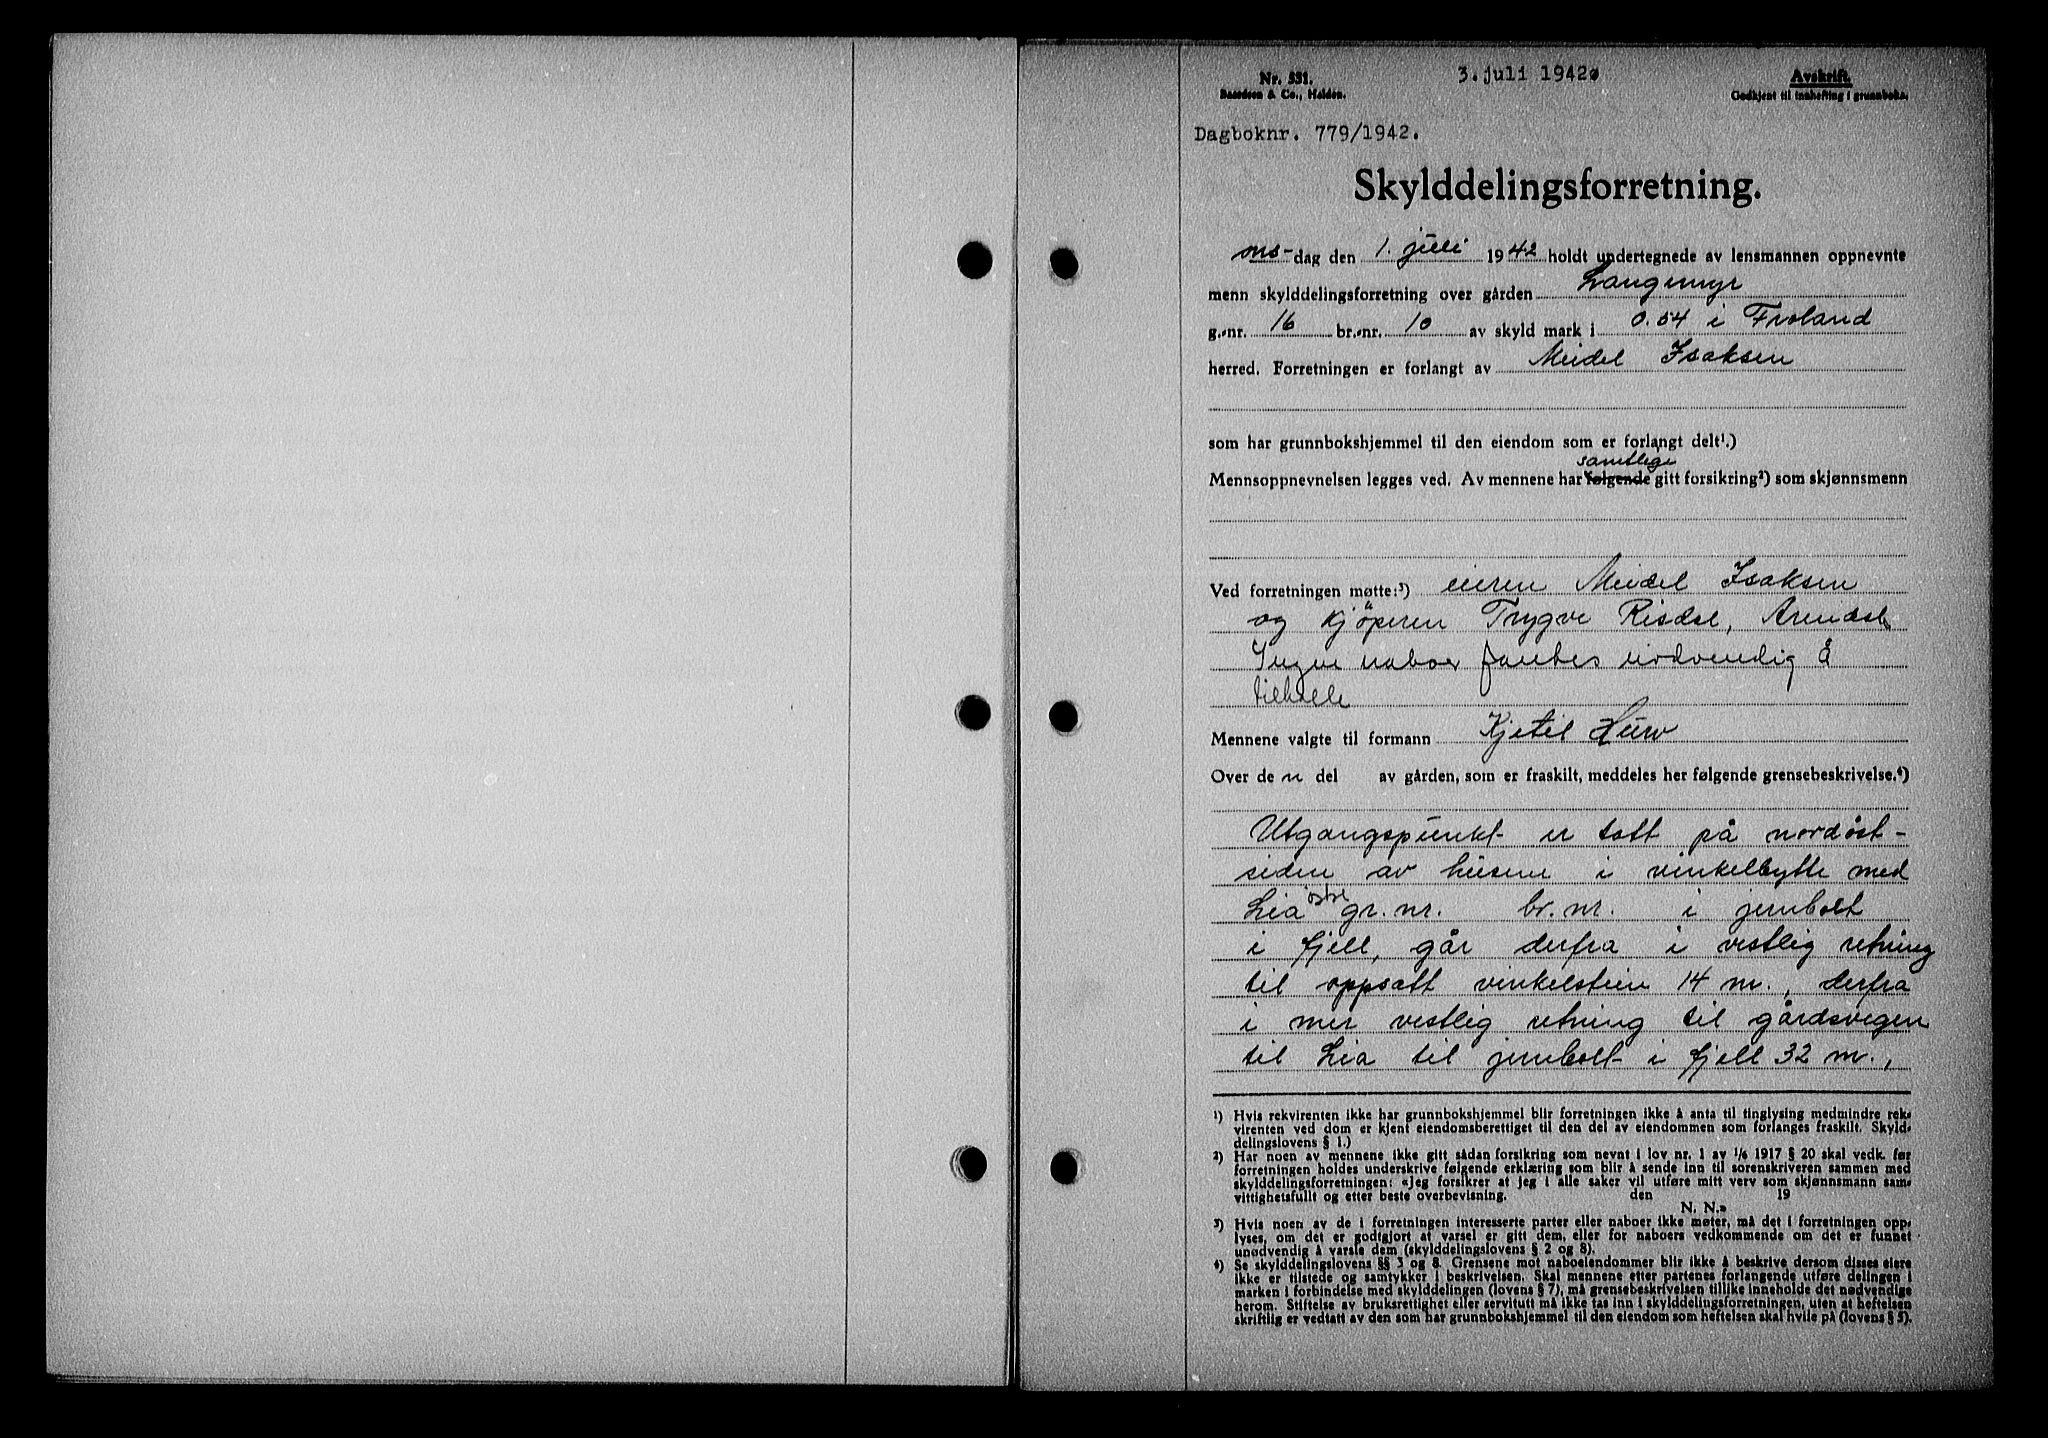 Nr. 531.
3. juli 1942.
Avskrift.
Basedsen & Co., Halden.
Godkjent til innhefting i grunnboka.
Dagboknr. 779/1942.
Skylddelingsforretning.
ons-dag den 1. juli 1942 holdt undertegnede av lensmannen oppnevnte
menn skylddelingsforretning over gården Langemyr
g.-nr. 16 br.-nr. 10 av skyld mark i 0.54 i Froland
herred. Forretningen er forlangt av Meidel Isaksen
som har grunnbokshjemmel til den eiendom som er forlangt delt¹.)
samtlige
Mennsoppnevnelsen legges ved. Av mennene har følgende gitt forsikring²) som skjønnsmenn
Ved forretningen møtte:³) eieren Meidel Isaksen
og kjøperen Trygve Risdal, Arendal.
Ingen naboer fantes nødvendig å
tilkalle
Mennene valgte til formann Kjetil Hurv
Over de n del av gården, som er fraskilt, meddeles her følgende grensebeskrivelse.⁴)
Utgangspunkt er tatt på nordøst-
siden av husene i vinkelbytte med
Lia østre gr. nr. br. nr. i jernbolt
i fjell, går derfra i vestlig retning
til oppsatt vinkelstein 14 m., derfra
i mer vestlig retning til gårdsvegen
til Lia til jernbolt i fjell 32 m.,
¹) Hvis rekvirenten ikke har grunnbokshjemmel blir forretningen ikke å anta til tinglysing medmindre rek-
virenten ved dom er kjent eiendomsberettiget til den del av eiendommen som forlanges fraskilt. Skyld-
delingslovens § 1.)
²) Har noen av mennene ikke gitt sådan forsikring som nevnt i lov nr. 1 av 1/6 1917 § 20 skal vedk. før
forretningen holdes underskrive følgende erklæring som blir å sende inn til sorenskriveren sammen med
skylddelingsforretningen: «Jeg forsikrer at jeg i alle saker vil utføre mitt verv som skjønnsmann sam-
vittighetsfullt og etter beste overbevisning. den 19
N. N.»
³) Hvis noen av de i forretningen interesserte parter eller naboer ikke møter, må det i forretningen opp-
lyses, om det er godtgjort at varsel er gitt dem, eller for naboers vedkommende om det er funnet
unødvendig å varsle dem (skylddelingslovens § 2 og 8).
⁴) Se skylddelingslovens §§ 3 og 8. Grensene mot naboeiendommer blir ikke å beskrive dersom disses eiere
ikke er tilstede og samtykker i beskrivelsen. Skal mennene etter partenes forlangende utføre delingen i
marken i forbindelse med skylddelingen (lovens § 7), må grensebeskrivelsen tillike inneholde det nødvendige
herom. Stiftelse av bruksrettighet eller servitutt må ikke tas inn i skylddelingsforretningen, uten at heftelsen
skriftlig er vedtatt av den som har grunnbokshjemmel til den eiendom som heftelsen skal hvile på (lovens § 5).